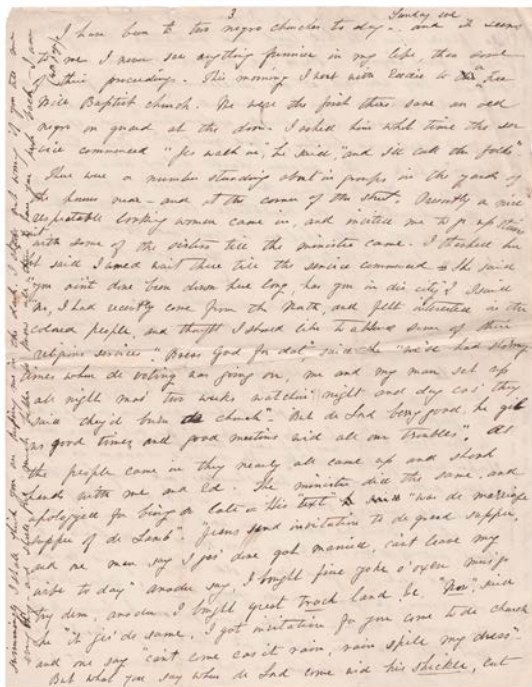 3
Sunday eve
I have been to two negro churches to day - and it seems
to me I never saw anything funnier in my life, than some
of their proceedings. This morning I went with Eddie to the Free
Will Baptist church. We were the first there save an old
negro on guard at the door. I asked him what time the ser
vice commenced "Jes walk in, he said, "and I'll call the folks"
There were a number standing about in groups in the yards of
the houses near - and at the corner of the street. Presently a nice
respectable looking woman came in, and invited me to go up stairs
with some of the sisters till the minister came. I thanked her
but said I would wait there till the service commenced She said
"you aint done been down here long, has you in dis city"? I said
no, I had recently come from the North, and felt interested in the
colored people, and thought I should like to attend some of their
religious services. "Bress God for dat" said she "we've had stormy
times when de voting was going on, me and my man set up
all night mos' two weeks watchin' night and day cas' they
said they'd burn de church". But de Lord being good, he gib
us good times, and good meetins wid all our troubles". As
the people came in they nearly all came up and shook
hands with me and Ed. The minister did the same, and
apologized for being so late - His "text" "was de marriage
supper of de Lamb". "Jesus send invitation to de great supper,
and one man say I jes' done got married, can't leave my
wife to day" anoder say, I bought five yoke o'oxen mus go
try dem, anoder I bought great track land &c. "Now", said
he "it jes' de same, I got invitation for you come to de church
and one say "can't come cas it rain, rain spile my dress".
But what you say when de Lord come wid his shickle, cut